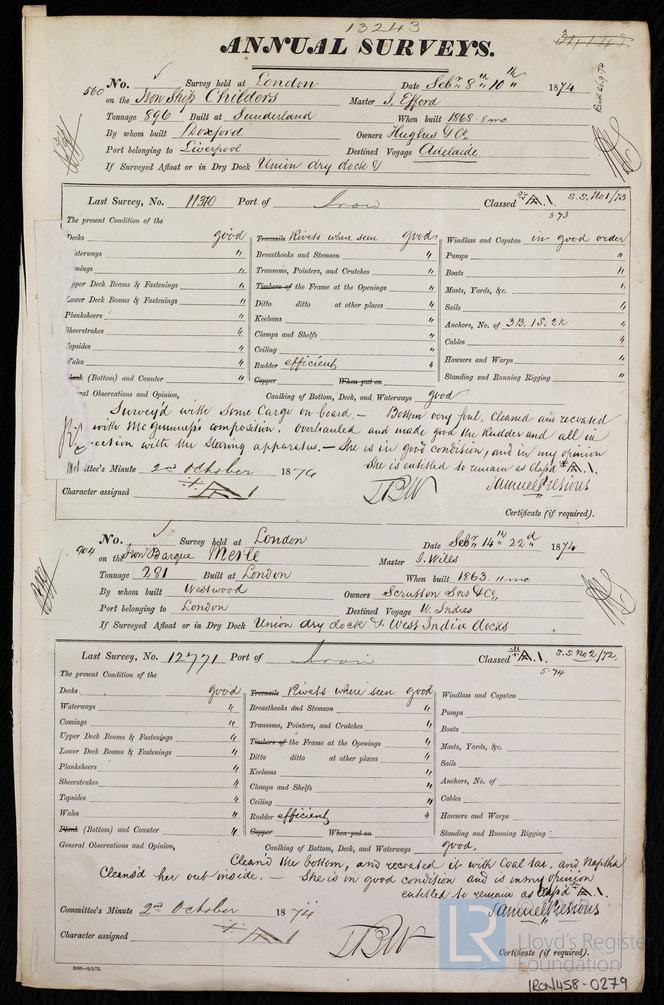 13243
ANNUAL SURVEYS.
560 No. Survey held at London Date Sebr 8th 10th 1874
on the Iron Ship Childers Master J. Efford
Tonnage 896 Built at Sunderland When built 1868 8mo
By whom built Doxford Owners Hughes & Co
Port belonging to Liverpool Destined Voyage Adelaide
If Surveyed Afloat or in Dry Dock Union dry dock &
Last Survey, No. 11310 Port of Iron Classed A.1. S.S. No 1/73
5.73
The present Condition of the
Decks good Treenails Rivets where seen good Windlass and Capstan in good order
aterways " Breasthooks and Stemson " Pumps "
mings " Transoms, Pointers, and Crutches " Boats "
pper Deck Beams & Fastenings " Timbers of the Frame at the Openings " Masts, Yards, &c. "
Lower Deck Beams & Fastenings " Ditto ditto at other places " Sails "
Planksheers " Keelsons " Anchors, No. of 3B. 1S. 2K "
Sheerstrakes " Clamps and Shelfs " Cables "
Topsides " Ceiling " Hawsers and Warps "
Wales " Rudder efficient " Standing and Running Rigging "
Plank (Bottom) and Counter " Copper When put on
ral Observations and Opinion, Caulking of Bottom, Deck, and Waterways good
Survey'd with some Cargo on board. — Bottom very foul, Cleaned and recoated
with composition. overhauled and made good the Rudder and all in
ection with the Steering apparatus. — She is in good condition, and in my opinion
She is entitled to remain as Clas'd A.1.
mittee's Minute 2nd October 1874
Character assigned A 1
Certificate (if required).
No. Survey held at London Date Sebr 14th 22d 1874
904 on the Iron Barque Merle Master J. Wills
Tonnage 281 Built at London When built 1863. 11mo
By whom built Westwood Owners Scrutton Sns & Co
Port belonging to London Destined Voyage W. Indies
If Surveyed Afloat or in Dry Dock Union dry dock & West India Docks
Last Survey, No. 12771 Port of Iron Classed A.1. S.S. No 2/72.
5.74
The present Condition of the
Decks good Treenails Rivets where seen good Windlass and Capstan
Waterways " Breasthooks and Stemson " Pumps
Comings " Transoms, Pointers, and Crutches " Boats
Upper Deck Beams & Fastenings " Timbers of the Frame at the Openings " Masts, Yards, &c.
Lower Deck Beams & Fastenings " Ditto ditto at other places " Sails
Planksheers " Keelsons " Anchors, No. of
Sheerstrakes " Clamps and Shelfs " Cables
Topsides " Ceiling " Hawsers and Warps
Wales " Rudder efficient " Standing and Running Rigging
Plank (Bottom) and Counter " Copper When put on
General Observations and Opinion, Caulking of Bottom, Deck, and Waterways good.
Clean'd the bottom, and recoated it with Coal tar, and Naptha
Cleans'd her out inside. — She is in good condition and is in my opinion
entitled to remain as Clas'd A.1.
Committee's Minute 2nd October 1874
Character assigned A 1
Certificate (if required).
LR Lloyd's Register
Foundation
IRON458-0279